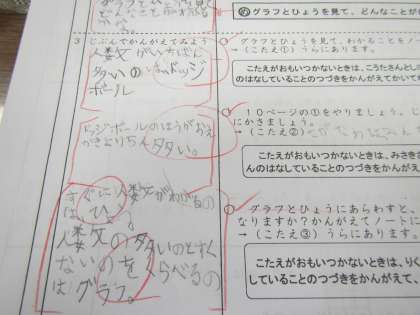 ㋨グラフとひょうを見て、どんなことが
3 じぶんでかんがえてみよう
人数が いちばん
多いの は ドッジ
ボール
ドッジボールのほうがおえ
かきより 多い。
すぐに人数がわかるの
はひょう。
人数の多いのとすく
ないのをくらべるの
はグラフ。
グラフとひょうを見て、わかることをノー
→(こたえ①)うらにあります。
こたえがおもいつかないときは、こうたさんとし
のはなしていることのつづきをかんがえてかいて
10ページの①をやりましょう。じ
にかきましょう。
→(こたえ②)
こたえがおもいつかないときは、みさき
んのはなしていることのつづきをかんが
グラフとひょうにあらわすと、
なりますか?かんがえてノートに
→(こたえ③)うらにあります。
こたえがおもいつかないときは、りく
していることのつづきをかんがえて、